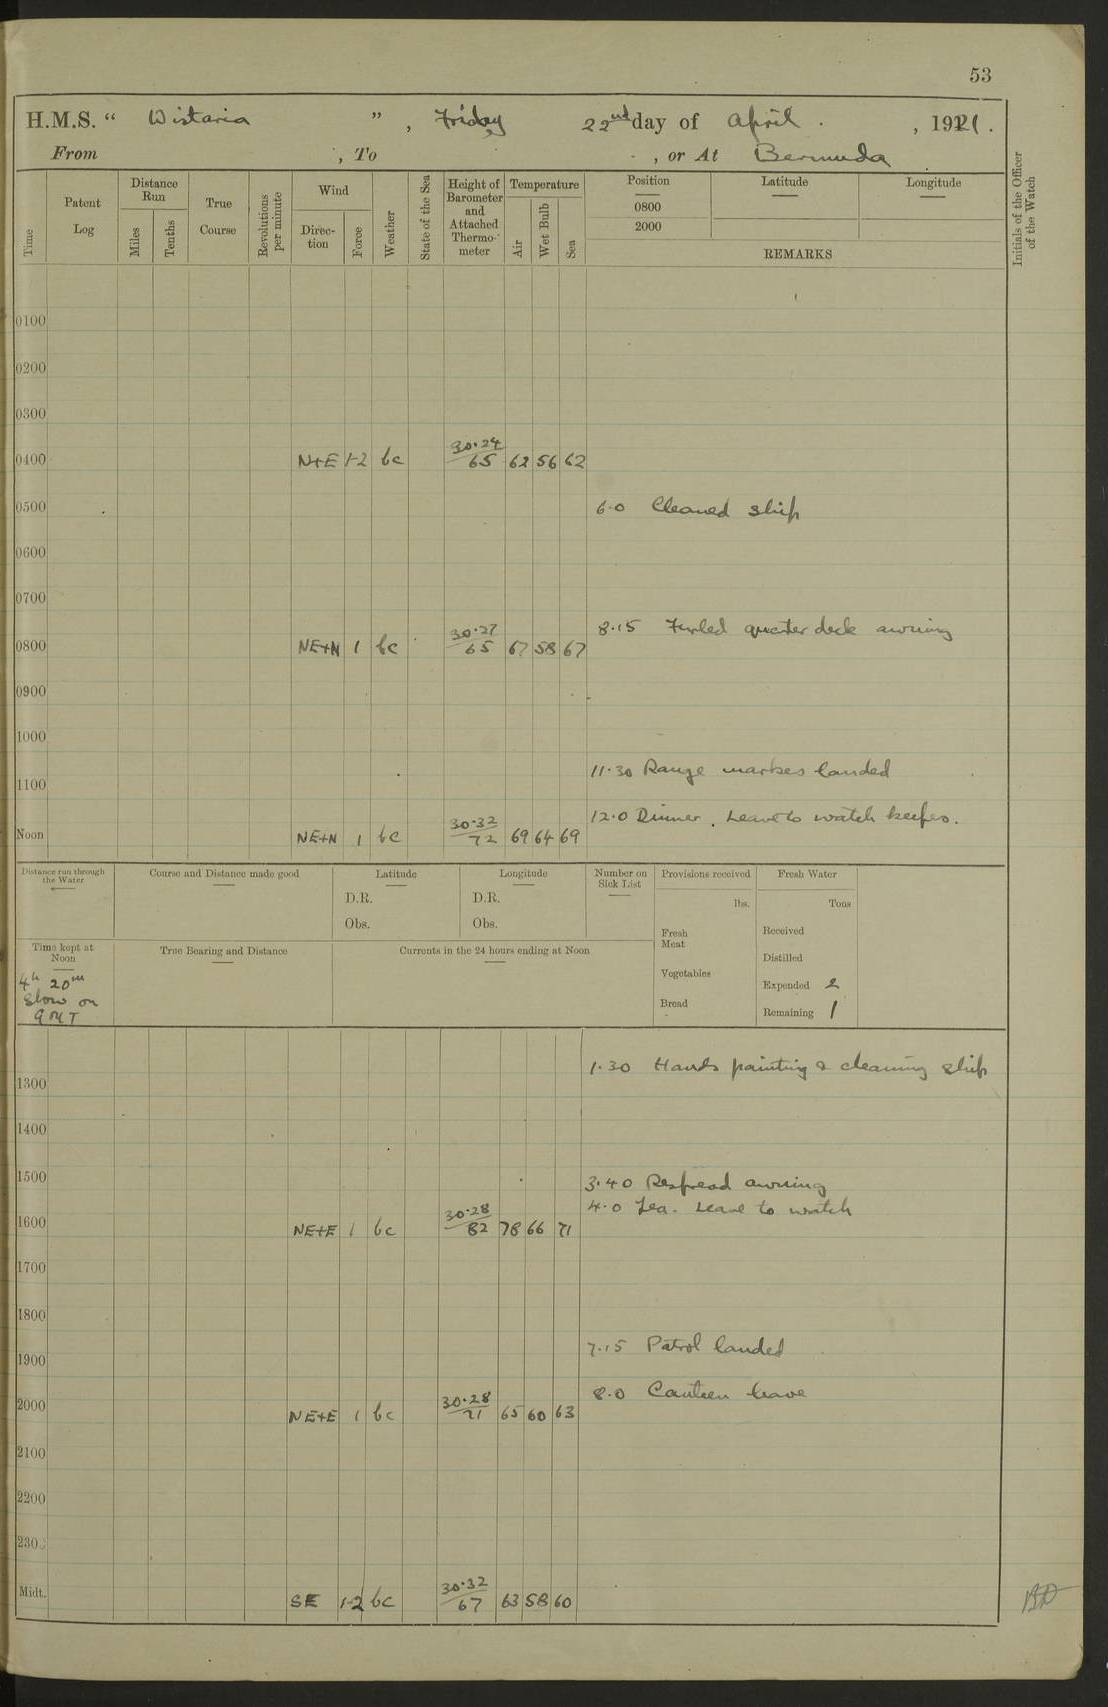 53
H.M.S. “ Wistaria ” , Friday 22nd day of April . , 1921.
From , To , or At Bermuda
Time
Patent Log
Distance Run
Miles
Tenths
True Course
Revolutions per minute
Wind
Direction
Force
Weather
State of the Sea
Height of Barometer and Attached Thermometer
Temperature
Air
Wet Bulb
Sea
Position Latitude Longitude
0800
2000
REMARKS
Initials of the Officer of the Watch
0100
0200
0300
0400 N+E 1-2 bc 30·24/65 62 56 62
0500 6·0 Cleaned ship
0600
0700
8·15 Furled quarter deck awning
0800 NE+N 1 bc 30·27/65 67 58 67
0900
1000
11·30 Range markers landed
1100
12·0 Dinner. Leave to watch keepers.
Noon NE+N 1 bc 30·32/72 69 64 69
Distance run through the Water
Course and Distance made good
Latitude
D.R.
Obs.
Longitude
D.R.
Obs.
Number on Sick List
Provisions received
lbs.
Fresh Meat
Vegetables
Bread
Fresh Water
Tons
Received
Distilled
Expended 2
Remaining 1
Time kept at Noon
4h 20m
Slow on
GMT
True Bearing and Distance
Currents in the 24 hours ending at Noon
1·30 Hands painting & cleaning ship
1300
1400
1500
3·40 Respread awning
4·0 Tea. Leave to watch
1600 NE+E 1 bc 30·28/82 78 66 71
1700
1800
7·15 Patrol landed
1900
8·0 Canteen leave
2000 NE+E 1 bc 30·28/71 65 60 63
2100
2200
230
Midt. SE 1-2 bc 30·32/67 63 58 60